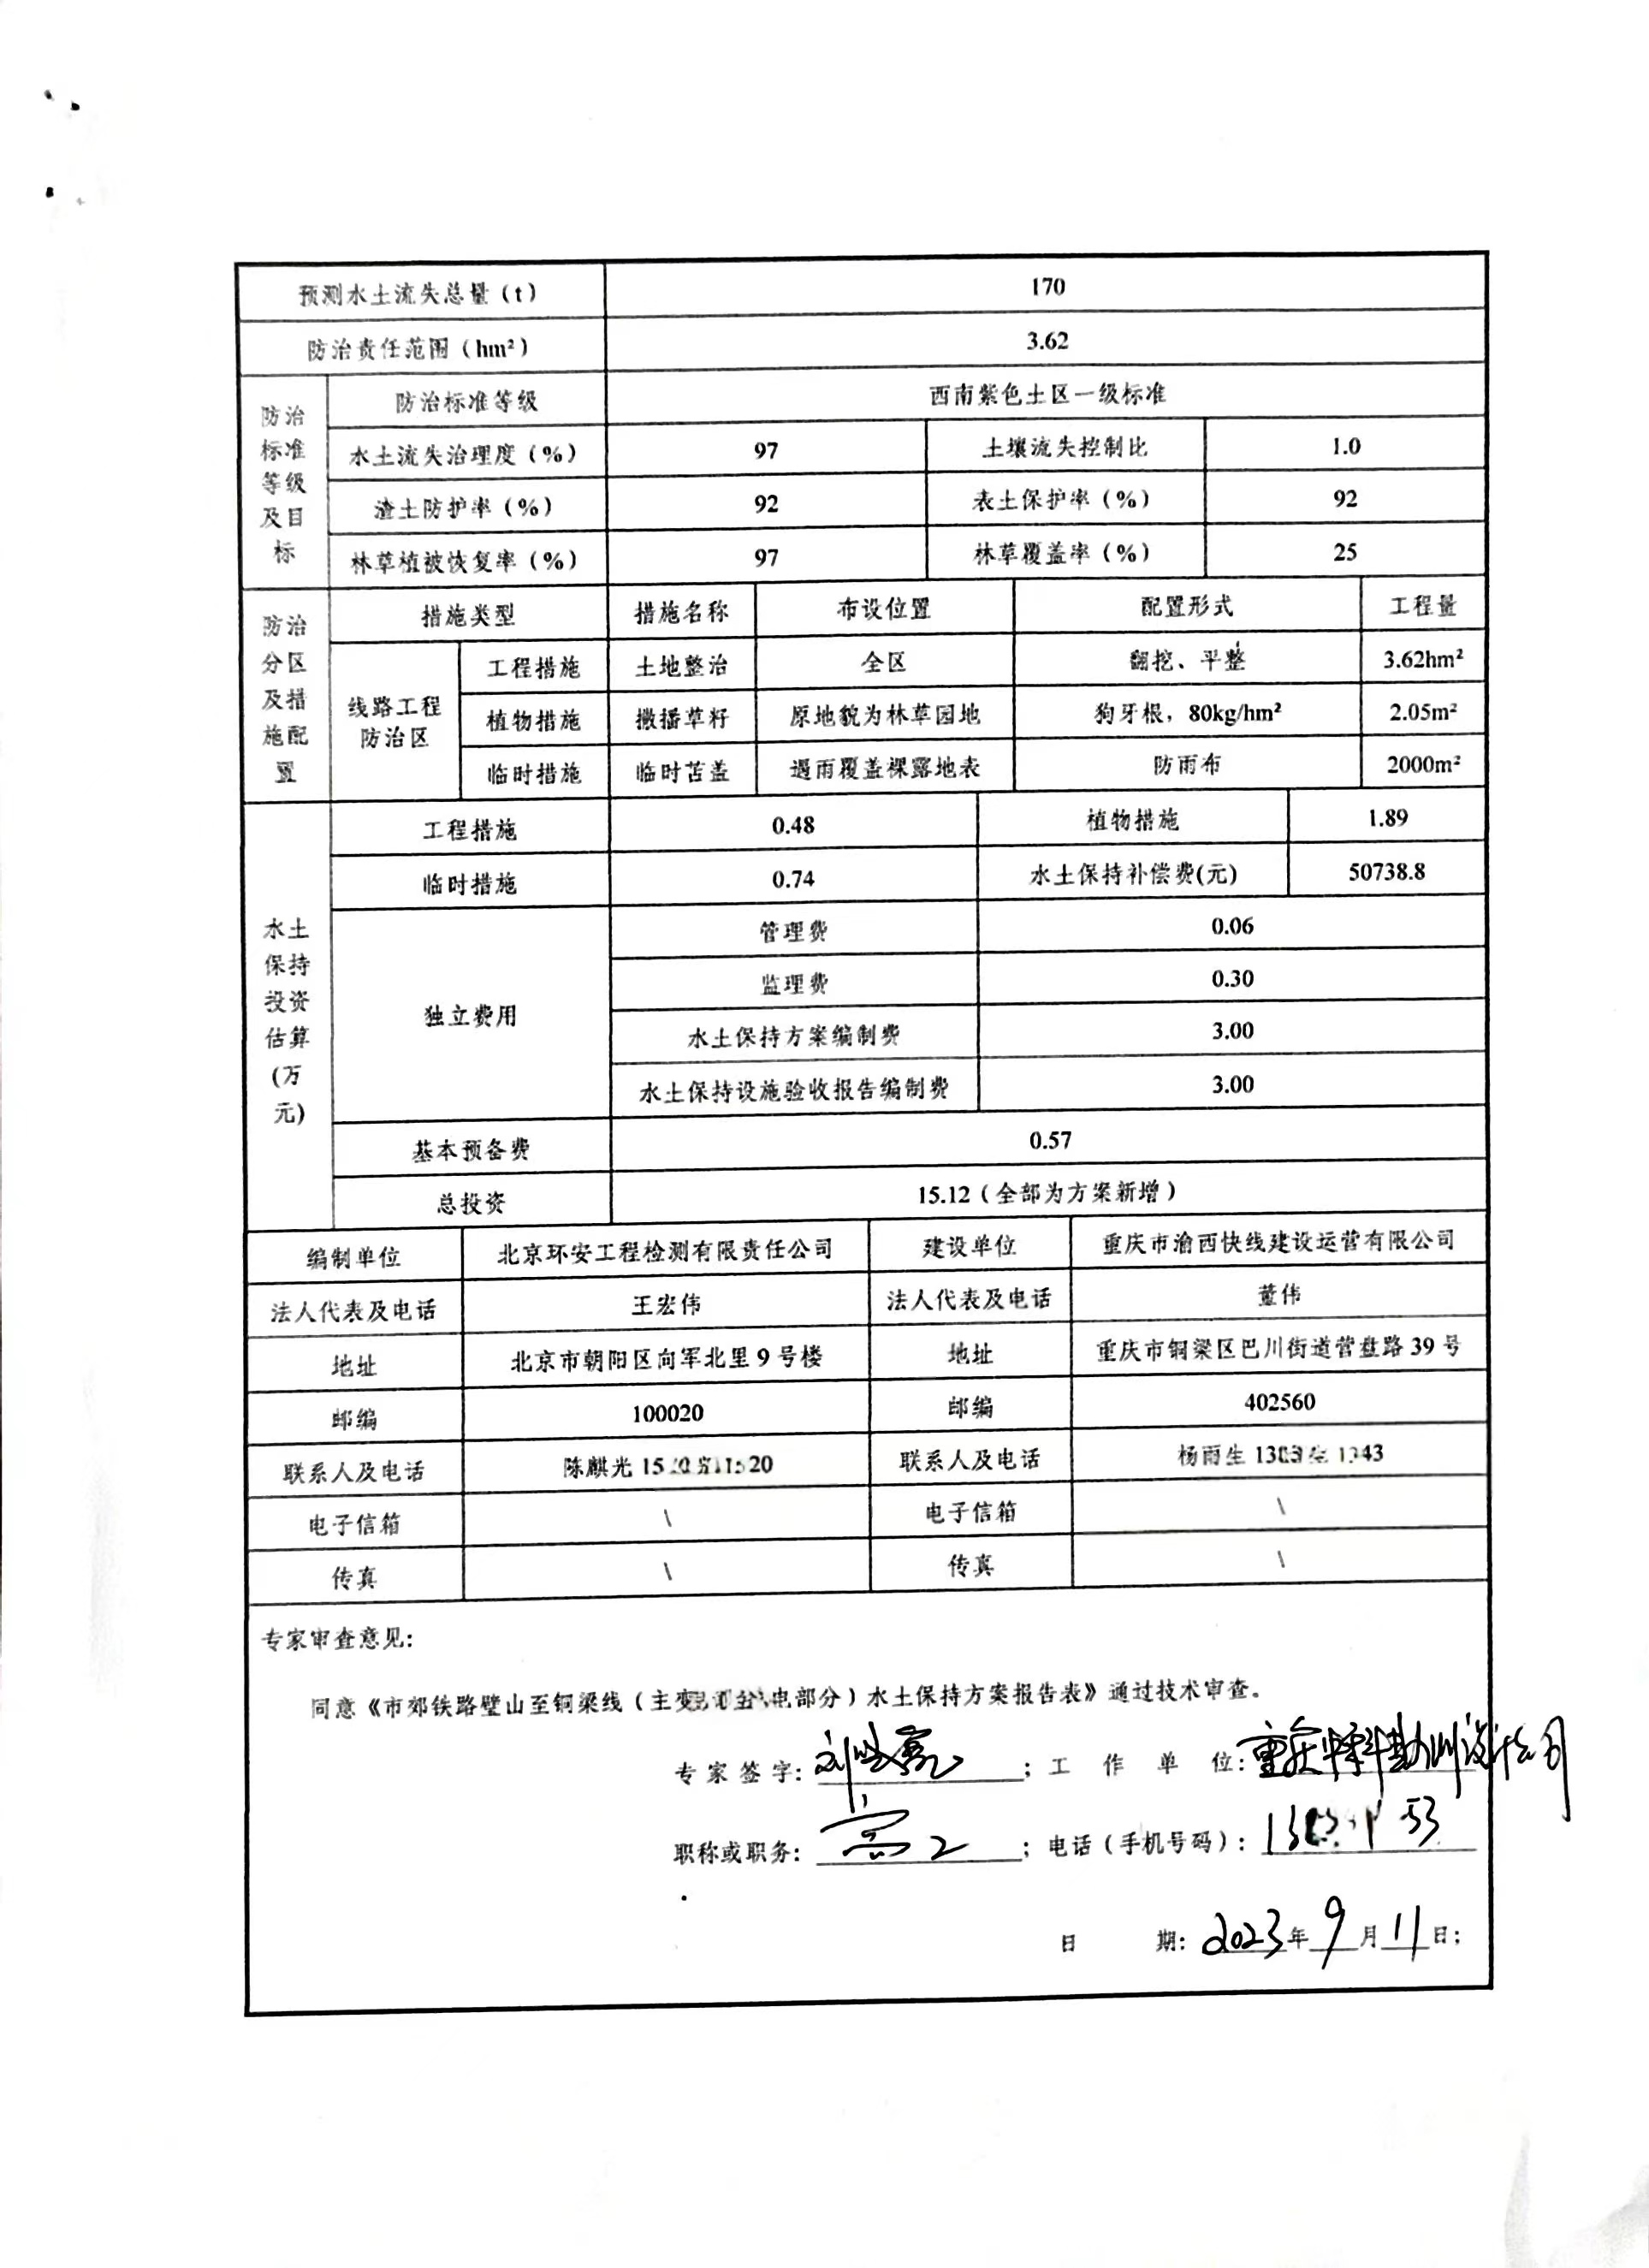 预测水土流失总量（t） 170
防治责任范围（hm²） 3.62
防治标准等级及目标 防治标准等级 西南紫色土区一级标准
水土流失治理度（%） 97 土壤流失控制比 1.0
渣土防护率（%） 92 表土保护率（%） 92
林草植被恢复率（%） 97 林草覆盖率（%） 25
防治分区及措施配置 措施类型 措施名称 布设位置 配置形式 工程量
线路工程防治区 工程措施 土地整治 全区 翻挖、平整 3.62hm²
植物措施 撒播草籽 原地貌为林草园地 狗牙根，80kg/hm² 2.05m²
临时措施 临时苫盖 遇雨覆盖裸露地表 防雨布 2000m²
水土保持投资估算(万元) 工程措施 0.48 植物措施 1.89
临时措施 0.74 水土保持补偿费(元) 50738.8
独立费用 管理费 0.06
监理费 0.30
水土保持方案编制费 3.00
水土保持设施验收报告编制费 3.00
基本预备费 0.57
总投资 15.12（全部为方案新增）
编制单位 北京环安工程检测有限责任公司 建设单位 重庆市渝西快线建设运营有限公司
法人代表及电话 王宏伟 法人代表及电话 董伟
地址 北京市朝阳区向军北里9号楼 地址 重庆市铜梁区巴川街道营盘路39号
邮编 100020 邮编 402560
联系人及电话 陈麒光 联系人及电话 杨雨生
电子信箱 \ 电子信箱 \
传真 \ 传真 \
专家审查意见：
同意《市郊铁路璧山至铜梁线（主变电部分）水土保持方案报告表》通过技术审查。
专家签字： ；工作单位：
职称或职务：高工 ；电话（手机号码）：
日期：2023年9月11日；